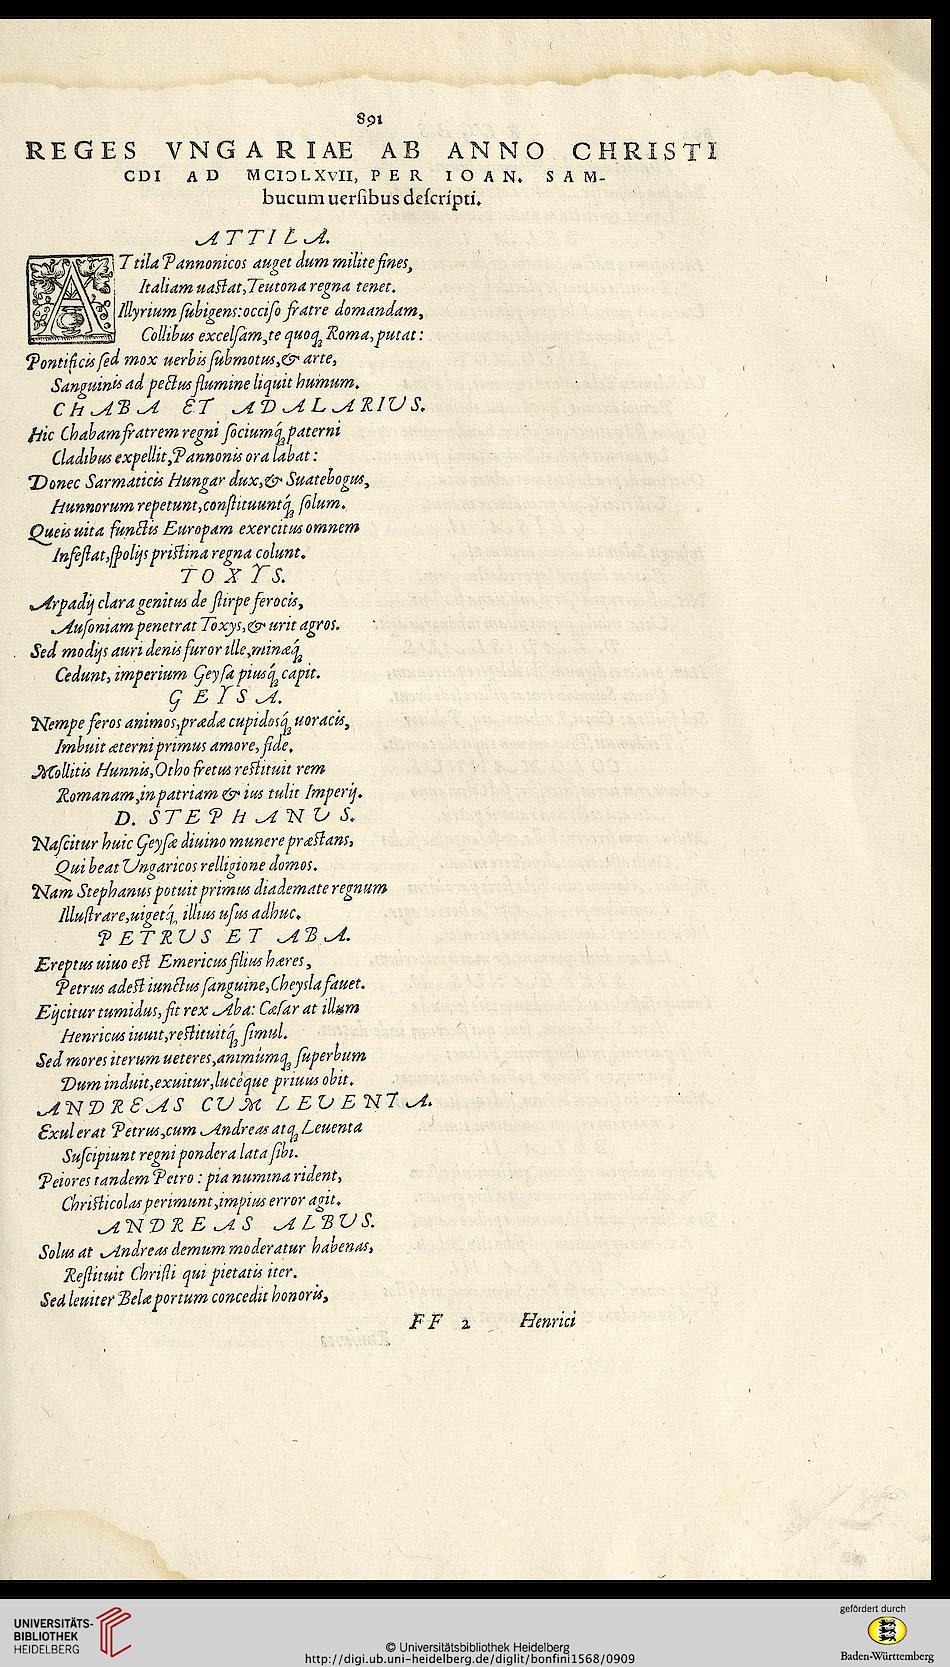 891
REGES VNGARIAE AB ANNO CHRISTI
CDI AD MCIↃLXVII, PER IOAN. SAM-
bucum uersibus descripti.
ATTILA.
ATtila Pannonicos auget dum milite fines,
Italiam uastat, Teutona regna tenet.
Illyrium subigens: occiso fratre domandam,
Collibus excelsam, te quoq; Roma, putat:
Pontificis sed mox uerbis submotus, & arte,
Sanguinis ad pectus flumine liquit humum.
CHABA ET ADALARIUS.
Hic Chabam fratrem regni sociumq́; paterni
Cladibus expellit, Pannonis ora labat:
Donec Sarmaticis Hungar dux, & Suatebogus,
Hunnorum repetunt, constituuntq́; solum.
Queis uita functis Europam exercitus omnem
Infestat, spolijs pristina regna colunt.
TOXYS.
Arpadij clara genitus de stirpe ferocis,
Ausoniam penetrat Toxys, & urit agros.
Sed modijs auri denis furor ille, minæq́;
Cedunt, imperium Geysa piusq́; capit.
GEYSA.
Nempe feros animos, prædæ cupidosq́; uoracis,
Imbuit æterni primus amore, fide.
Mollitis Hunnis, Otho fretus restituit rem
Romanam, in patriam & ius tulit Imperij.
D. STEPHANUS.
Nascitur huic Geysæ diuino munere præstans,
Qui beat Ungaricos relligione domos.
Nam Stephanus potuit primus diademate regnum
Illustrare, uigetq́; illius usus adhuc.
PETRUS ET ABA.
Ereptus uiuo est Emericus filius hæres,
Petrus adest iunctus sanguine, Cheysla fauet.
Eijcitur tumidus, fit rex Aba: Cæsar at illum
Henricus iuuit, restituitq́; simul.
Sed mores iterum ueteres, animúmq; superbum
Dum induit, exuitur, lucéque priuus obit.
ANDREAS CUM LEUENTA.
Exul erat Petrus, cum Andreas atq; Leuenta
Suscipiunt regni pondera lata sibi.
Peiores tandem Petro: pia numina rident,
Christicolas perimunt, impius error agit.
ANDREAS ALBUS.
Solus at Andreas demum moderatur habenas,
Restituit Christi qui pietatis iter.
Sed leuiter Belæ portum concedit honoris,
FF 2 Henrici
UNIVERSITÄTS-
BIBLIOTHEK
HEIDELBERG
© Universitätsbibliothek Heidelberg
http://digi.ub.uni-heidelberg.de/diglit/bonfini1568/0909
gefördert durch
Baden-Württemberg